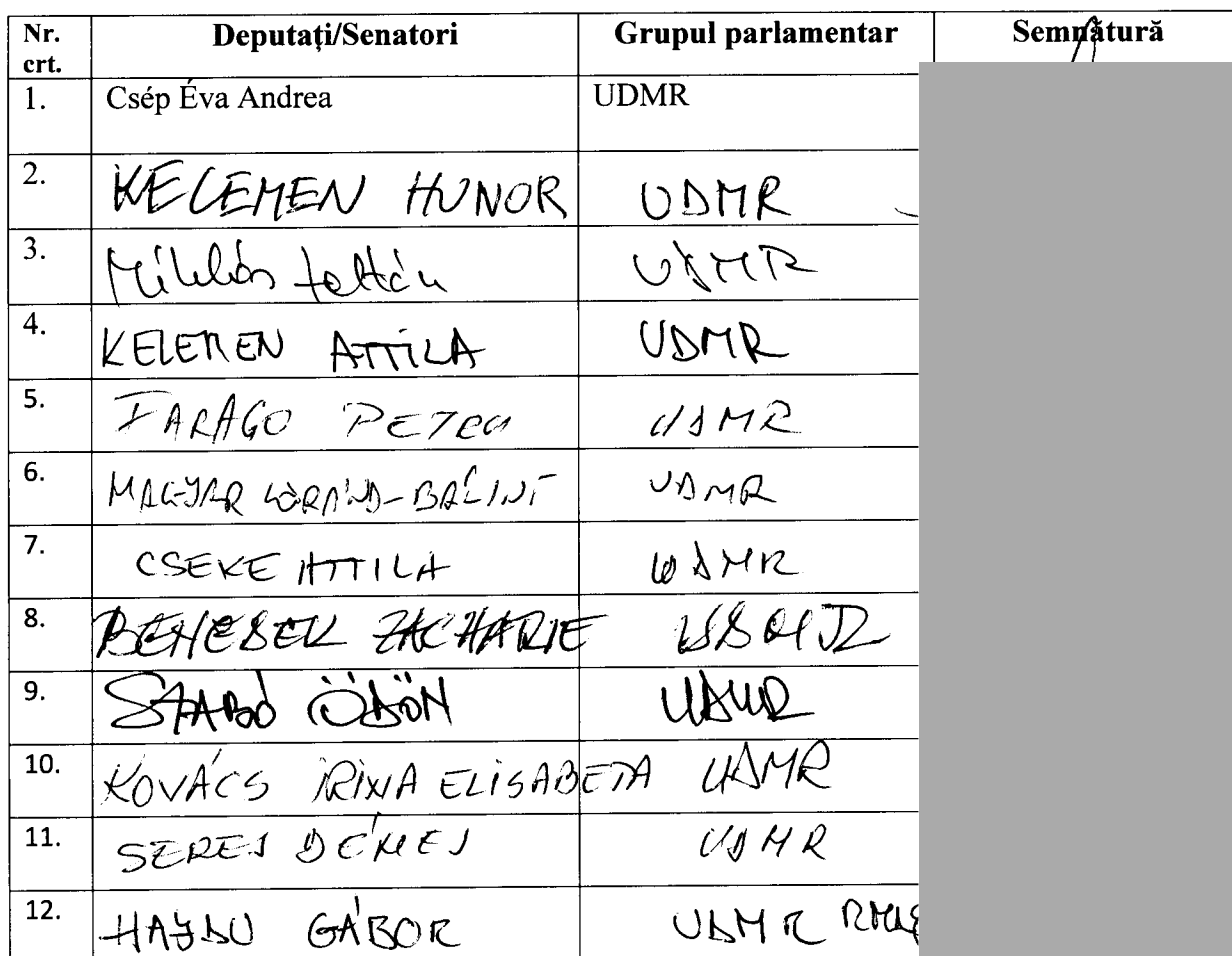 Nr. crt. Deputați/Senatori Grupul parlamentar Semnătură
1. Csép Éva Andrea UDMR
2. KELEMEN HUNOR UDMR
3. Miklós Zoltán UDMR
4. KELEMEN ATTILA UDMR
5. FARAGO PETRU UDMR
6. MAGYAR LORÁND-BÁLINT UDMR
7. CSEKE ATTILA UDMR
8. BENEDEK ZACHARIE UDMR
9. SZABÓ ÖDÖN UDMR
10. KOVÁCS IRINA ELISABETA UDMR
11. SERES DÉNES UDMR
12. HAJDU GÁBOR UDMR